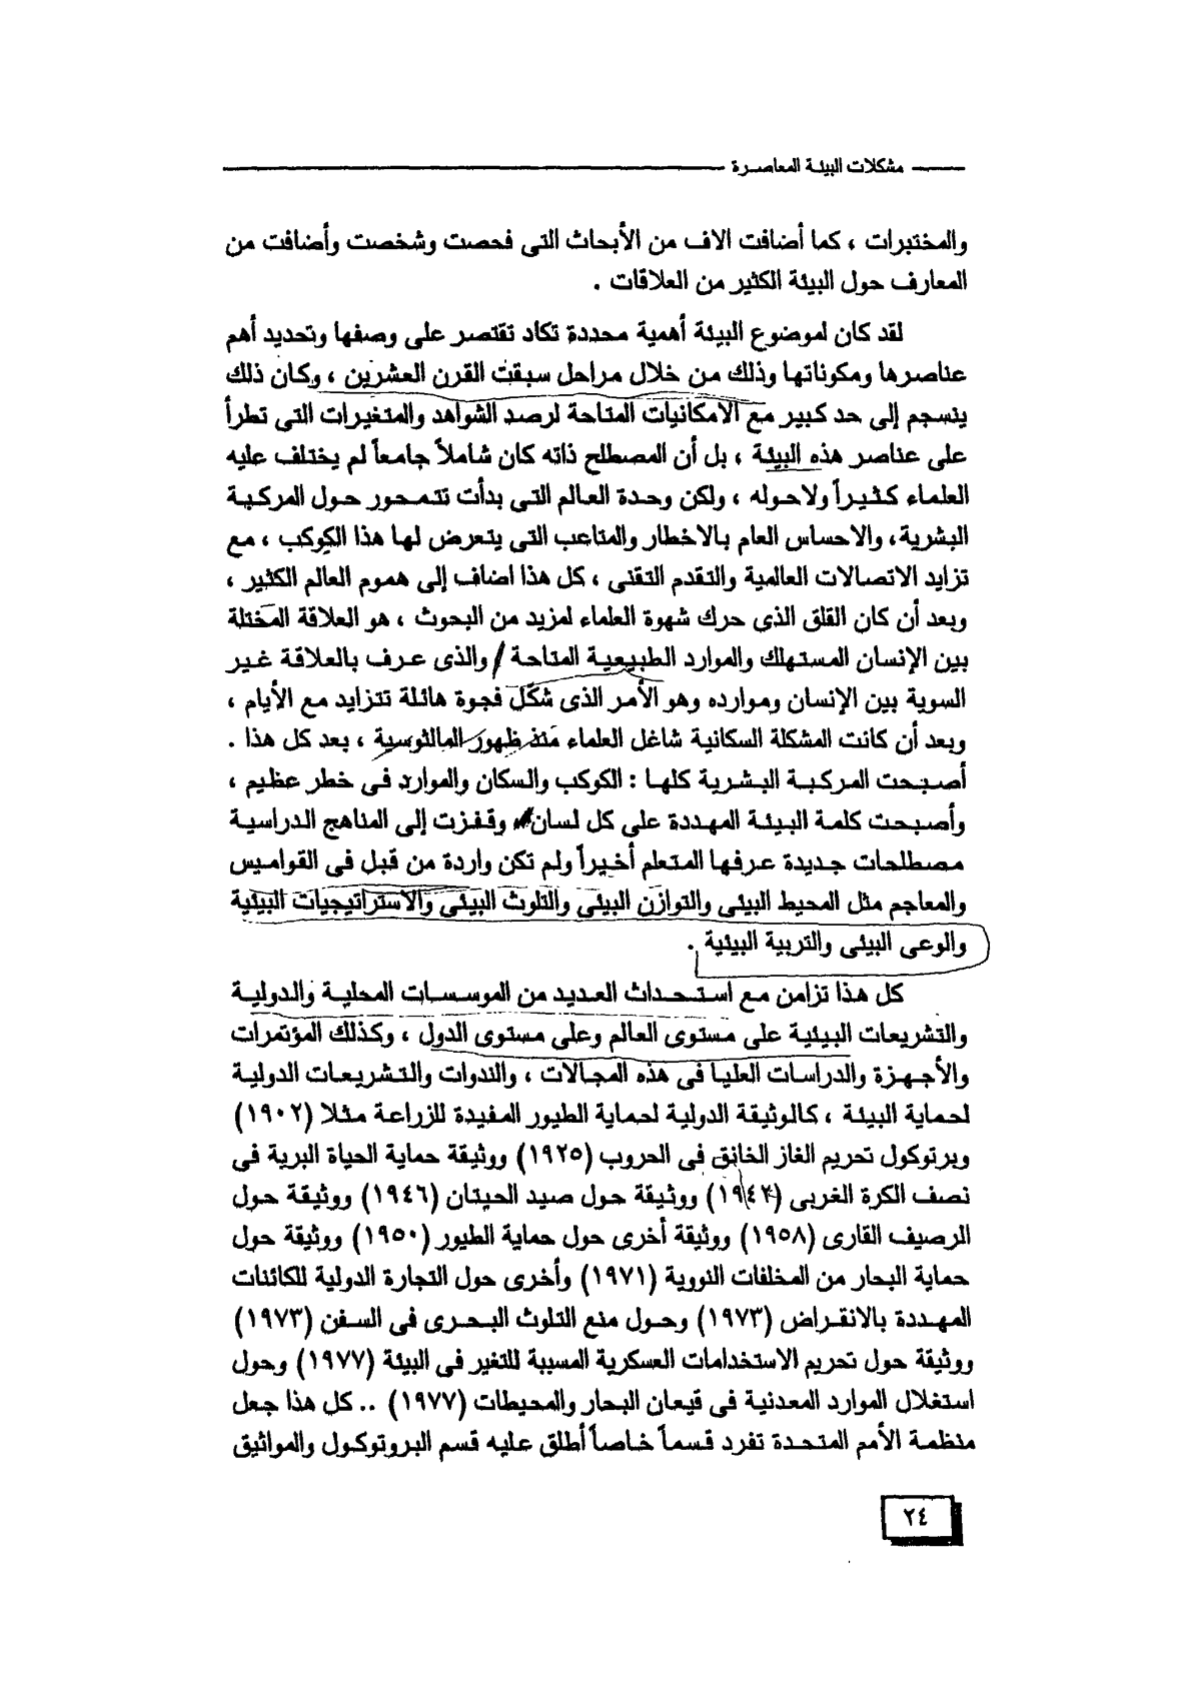 مشكلات البيئة المعاصرة
والمختبرات ، كما أضافت الاف من الأبحاث التى فحصت وشخصت وأضافت من
المعارف حول البيئة الكثير من العلاقات .
لقد كان لموضوع البيئة أهمية محددة تكاد تقتصر على وصفها وتحديد أهم
عناصرها ومكوناتها وذلك من خلال مراحل سبقت القرن العشرين ، وكان ذلك
ينسجم إلى حد كبير مع الامكانيات المتاحة لرصد الشواهد والمتغيرات التى تطرأ
على عناصر هذه البيئة ، بل أن المصطلح ذاته كان شاملاً جامعاً لم يختلف عليه
العلماء كثيراً ولاحوله ، ولكن وحدة العالم التى بدأت تتمحور حول المركبة
البشرية، والاحساس العام بالاخطار والمتاعب التى يتعرض لها هذا الكوكب ، مع
تزايد الاتصالات العالمية والتقدم التقنى ، كل هذا اضاف إلى هموم العالم الكثير ،
وبعد أن كان القلق الذى حرك شهوة العلماء لمزيد من البحوث ، هو العلاقة المختلة
بين الإنسان المستهلك والموارد الطبيعية المتاحة / والذى عرف بالعلاقة غير
السوية بين الإنسان وموارده وهو الأمر الذى شكل فجوة هائلة تتزايد مع الأيام ،
وبعد أن كانت المشكلة السكانية شاغل العلماء منذ ظهور المالثوسية ، بعد كل هذا .
أصبحت المركبة البشرية كلها : الكوكب والسكان والموارد فى خطر عظيم ،
وأصبحت كلمة البيئة المهددة على كل لسان، وقفزت إلى المناهج الدراسية
مصطلحات جديدة عرفها المتعلم أخيراً ولم تكن واردة من قبل فى القواميس
والمعاجم مثل المحيط البيئى والتوازن البيئى والتلوث البيئى والاستراتيجيات البيئية
والوعى البيئى والتربية البيئية .
كل هذا تزامن مع استحداث العديد من الموسسات المحلية والدولية
والتشريعات البيئية على مستوى العالم وعلى مستوى الدول ، وكذلك المؤتمرات
والأجهزة والدراسات العليا فى هذه المجالات ، والندوات والتشريعات الدولية
لحماية البيئة ، كالوثيقة الدولية لحماية الطيور المفيدة للزراعة مثلا (١٩٠٢)
وبرتوكول تحريم الغاز الخانق فى الحروب (١٩٢٥) ووثيقة حماية الحياة البرية فى
نصف الكرة الغربى (١٩٤٢) ووثيقة حول صيد الحيتان (١٩٤٦) ووثيقة حول
الرصيف القارى (١٩٥٨) ووثيقة أخرى حول حماية الطيور (١٩٥٠) ووثيقة حول
حماية البحار من المخلفات النووية (١٩٧١) وأخرى حول التجارة الدولية للكائنات
المهددة بالانقراض (١٩٧٣) وحول منع التلوث البحرى فى السفن (١٩٧٣)
ووثيقة حول تحريم الاستخدامات العسكرية المسببة للتغير فى البيئة (١٩٧٧) وحول
استغلال الموارد المعدنية فى قيعان البحار والمحيطات (١٩٧٧) .. كل هذا جعل
منظمة الأمم المتحدة تفرد قسماً خاصاً أطلق عليه قسم البروتوكول والمواثيق
٢٤